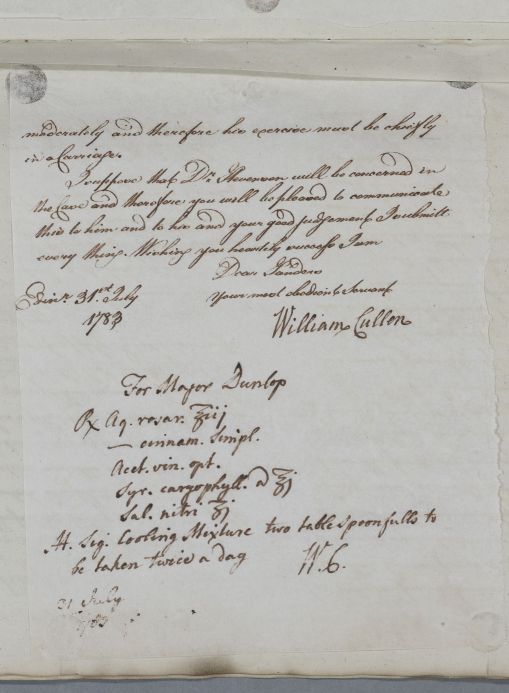 moderately and therefore her exercise must be chiefly
in a Carriage.
I suppose that Dr. Stevenson will be concerned in
the Case and therefore you will be pleased to communicate
this to him and to his and your good judgement I submitt
every thing. Wishing you heartily success I am
Dear Sanders
Your most obedient Servant
Edinr. 31st July
1783
William Cullen
For Major Dunlop
℞ Aq. rosar. ℥iij
— cinnam. simpl.
Acet. vin. opt.
Syr. caryophyll. a ℥j
Sal. nitri ʒj
M. Sig. Cooling Mixture two table spoonfulls to
be taken twice a day
W.C.
31 July
1783